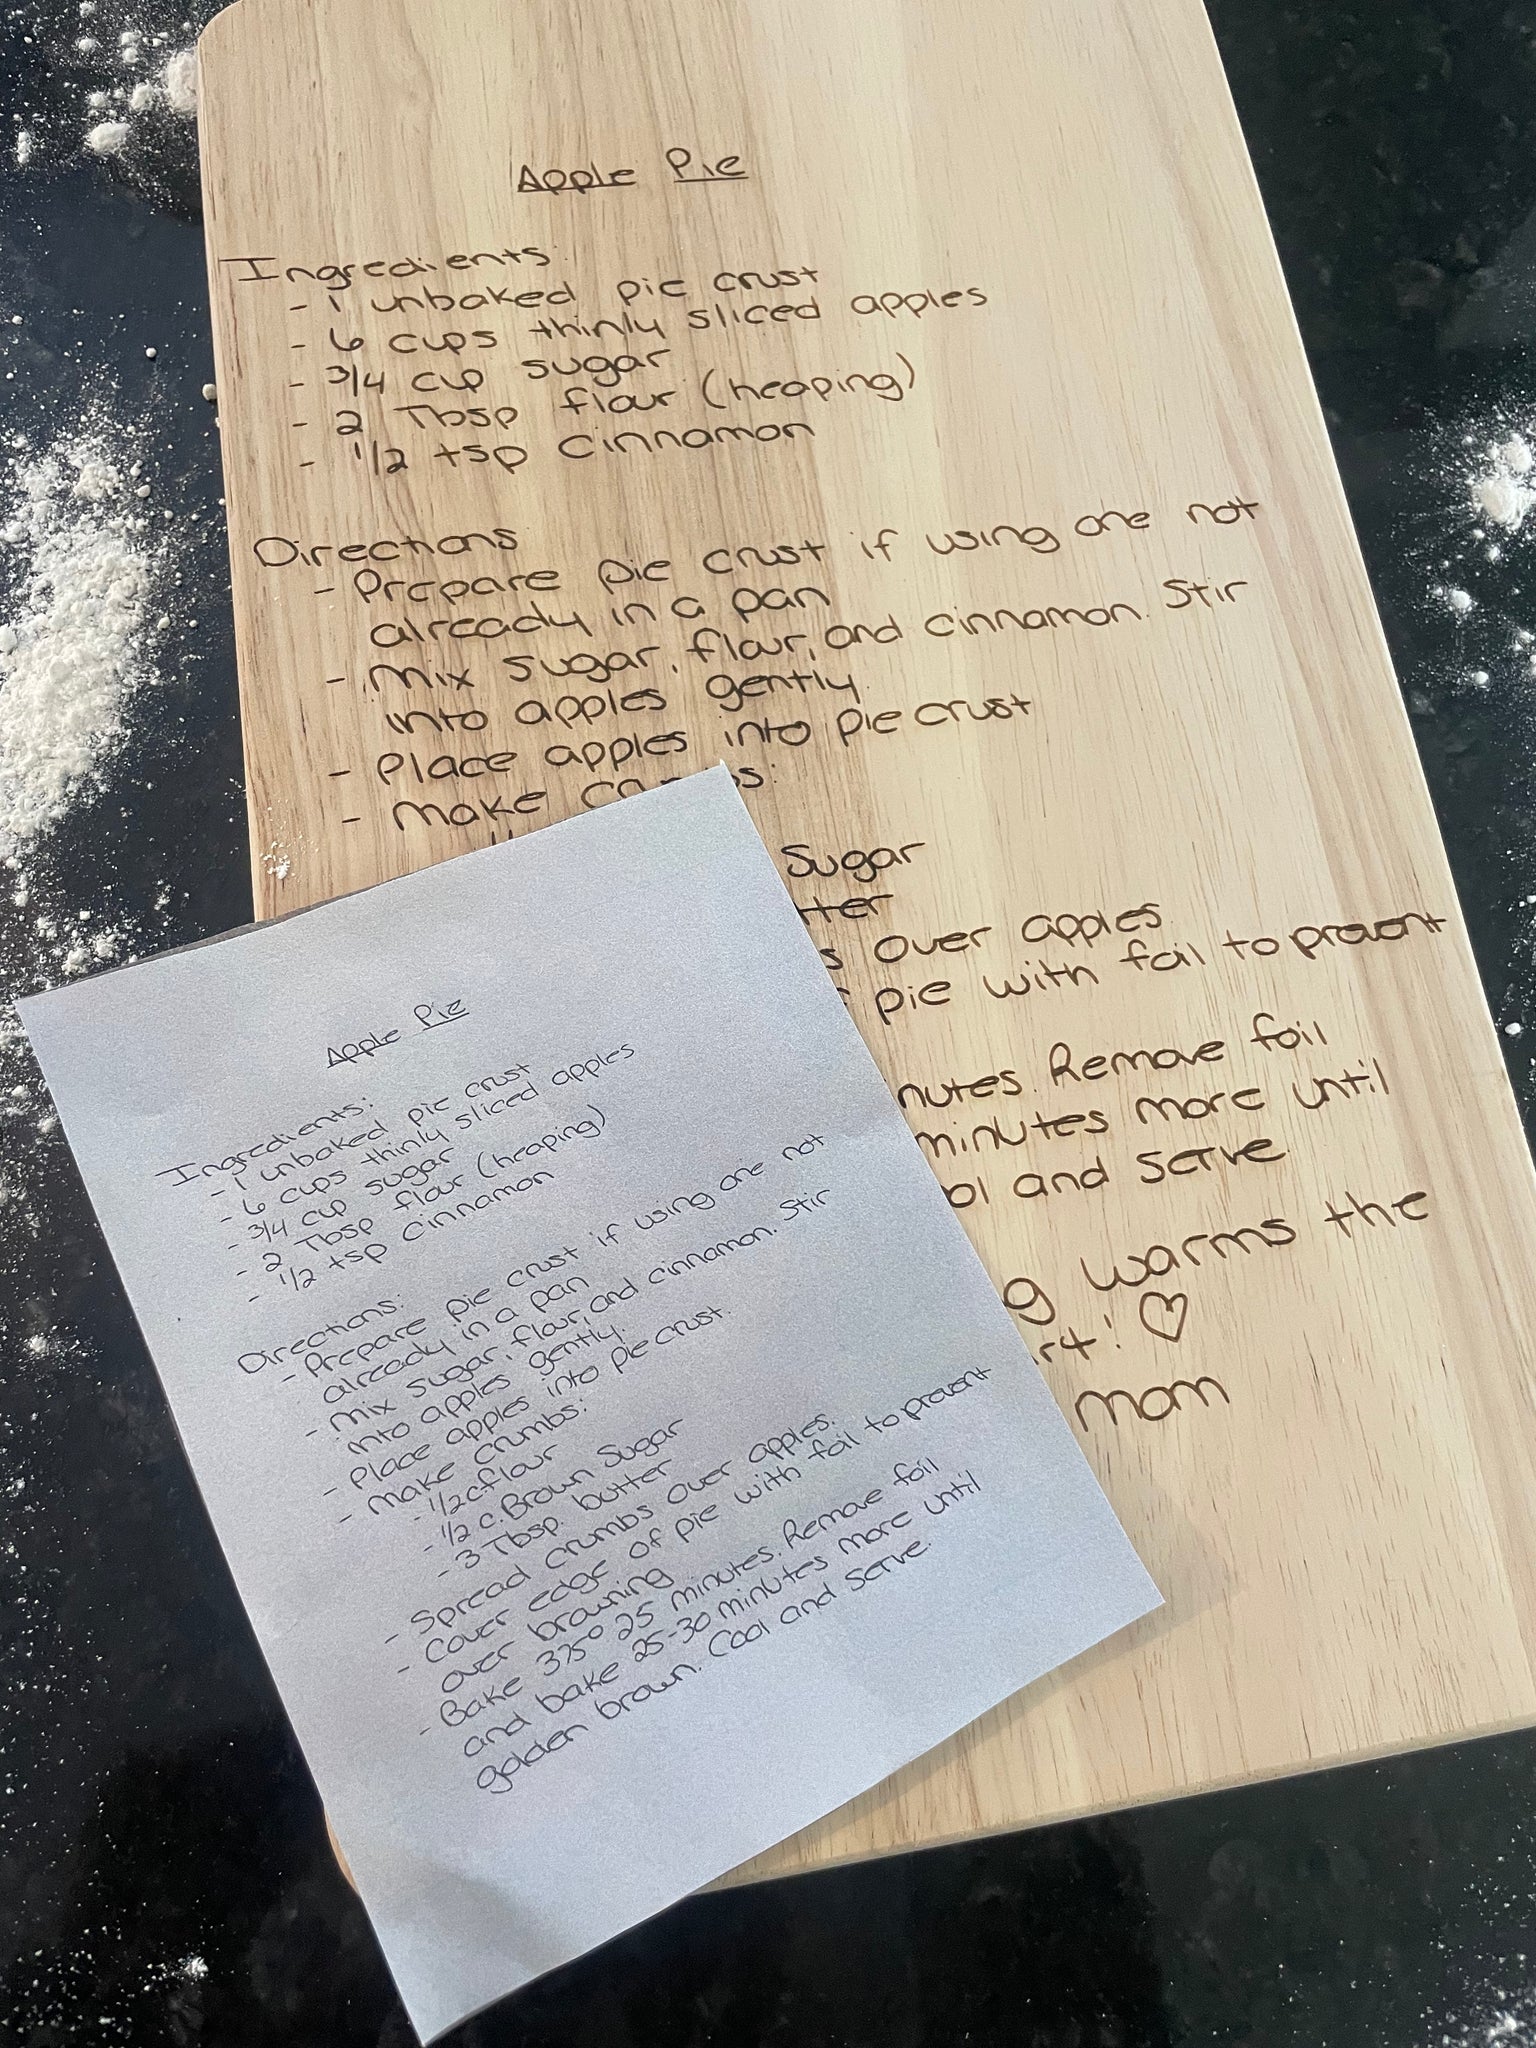 Apple Pie
Ingredients:
- 1 unbaked pie crust
- 6 cups thinly sliced apples
- 3/4 cup sugar
- 2 Tbsp flour (heaping)
- 1/2 tsp cinnamon
Directions
- Prepare pie crust if using one not
already in a pan
- Mix sugar, flour, and cinnamon. Stir
into apples gently.
- Place apples into pie crust
- Make
Sugar
over apples.
pie with foil to prevent
Remove foil
minutes more until
and serve.
warms the
♡
mom
Apple Pie
Ingredients:
- 1 unbaked pie crust
- 6 cups thinly sliced apples
- 3/4 cup sugar
- 2 Tbsp flour (heaping)
- 1/2 tsp cinnamon
Directions:
- Prepare pie crust if using one not
already in a pan
- Mix sugar, flour, and cinnamon. Stir
into apples gently.
- Place apples into pie crust.
- Make crumbs:
- 1/2 c. flour
- 1/2 c. Brown Sugar
- 3 Tbsp. butter
- Spread crumbs over apples.
- Cover edge of pie with foil to prevent
over browning
- Bake 375° 25 minutes. Remove foil
and bake 25-30 minutes more until
golden brown. Cool and serve.